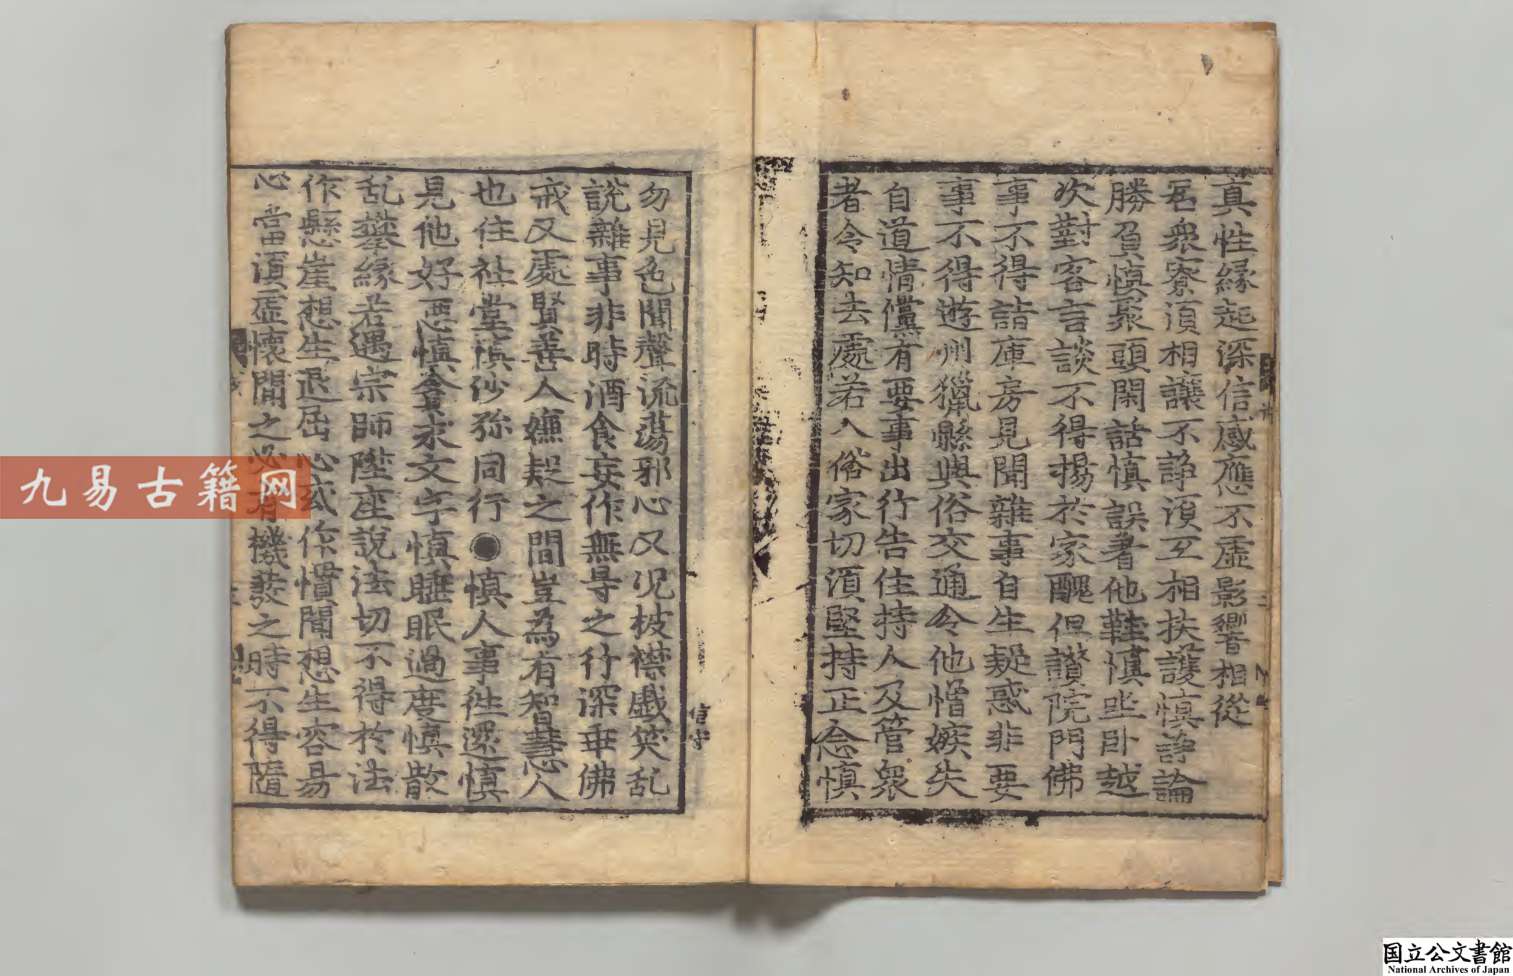 真性緣起深信感應不虛影響相從
居衆寮須相讓不諍須互相扶護慎諍論
勝負慎聚頭閑話慎誤著他鞋慎坐卧越
次對客言談不得揚於家醜但讚院門佛
事不得詣庫房見聞雜事自生疑惑非要
事不得遊州獵縣與俗交通令他憎嫉失
自道情儻有要事出行告住持人及管衆
者令知去處若入俗家切須堅持正念慎
勿見色聞聲流蕩邪心又况披襟戯笑乱
說雜事非時酒食妄作無㝵之行深乖佛
戒又處賢善人嫌疑之間豈為有智慧人
也住社堂慎沙弥同行●慎人事徃還慎
見他好惡慎貪求文字慎睡眠過度慎散
乱攀緣若遇宗師陞座說法切不得於法
作懸崖想生退屈心或作慣聞想生容昜
心當須虛懷聞之必有機發之時不得隨
信守
九易古籍网
国立公文書館
National Archives of Japan